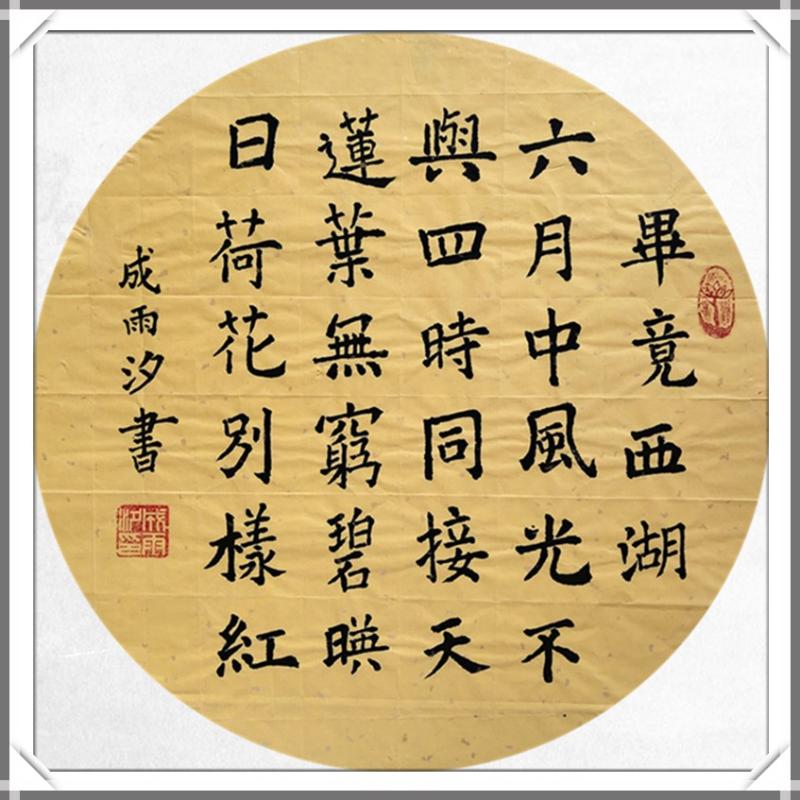 畢竟西湖
六月中風光不
與四時同接天
蓮葉無窮碧暎
日荷花別樣紅
成雨汐書